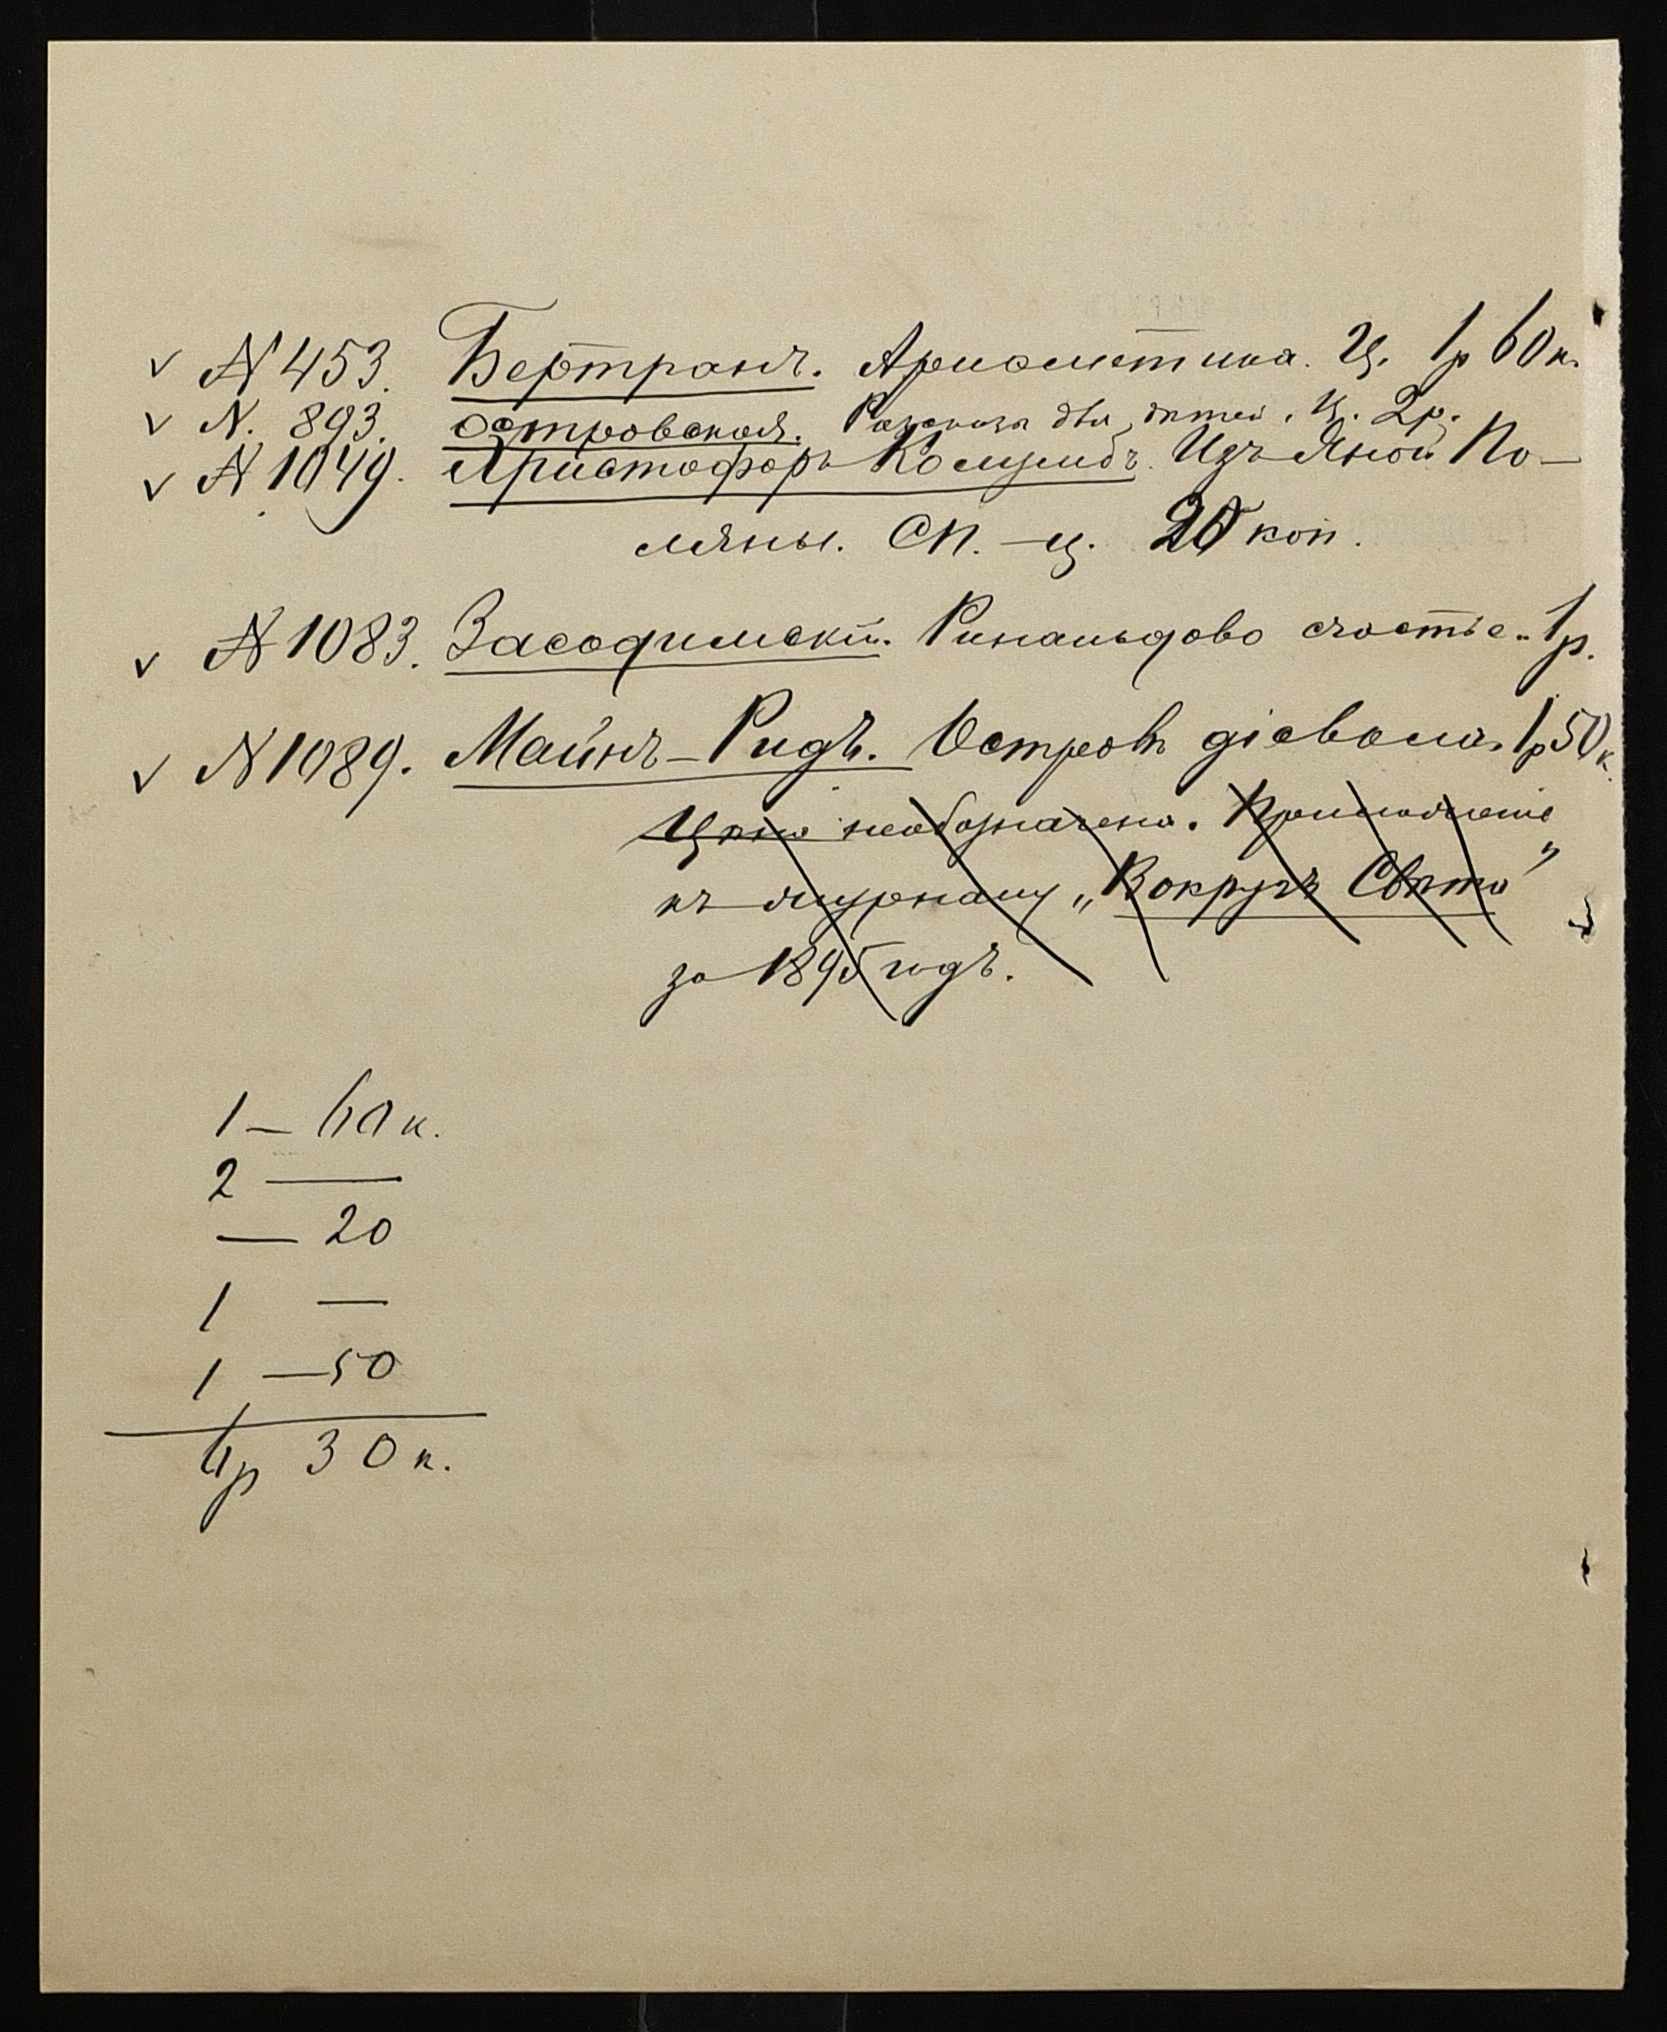 √ № 453. Бертранъ. Ариѳметика. Ц. 1 р 60 к.
√ N. 893. Островская. Разсказы для дѣтей. Ц. 2 р.
√ № 1049. Христофоръ Колумбъ. Изъ Ясной По-
ляны. СП. – ц. 20 коп.
√ № 1083. Засодимскій. Ринальдово счастье. 1 р.
√ № 1089. Майнъ-Ридъ. Островъ діавола. 1 р 50 к.
Цѣна необозначена. Приложеніе
къ журналу „Вокругъ Свѣта"
за 1895 годъ.
1 – 60 к.
2 —
— 20
1 —
1 – 50
6 р 30 к.